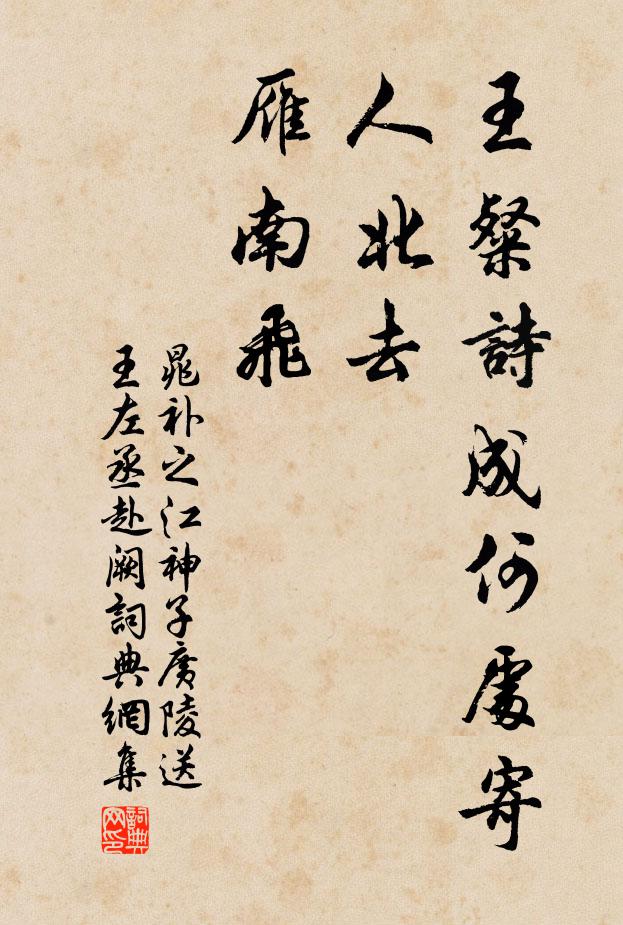 王粲詩成何處寄
人北去
雁南飛
晁补之江神子廣陵送
王左丞赴阙詞典網集
詞典网印